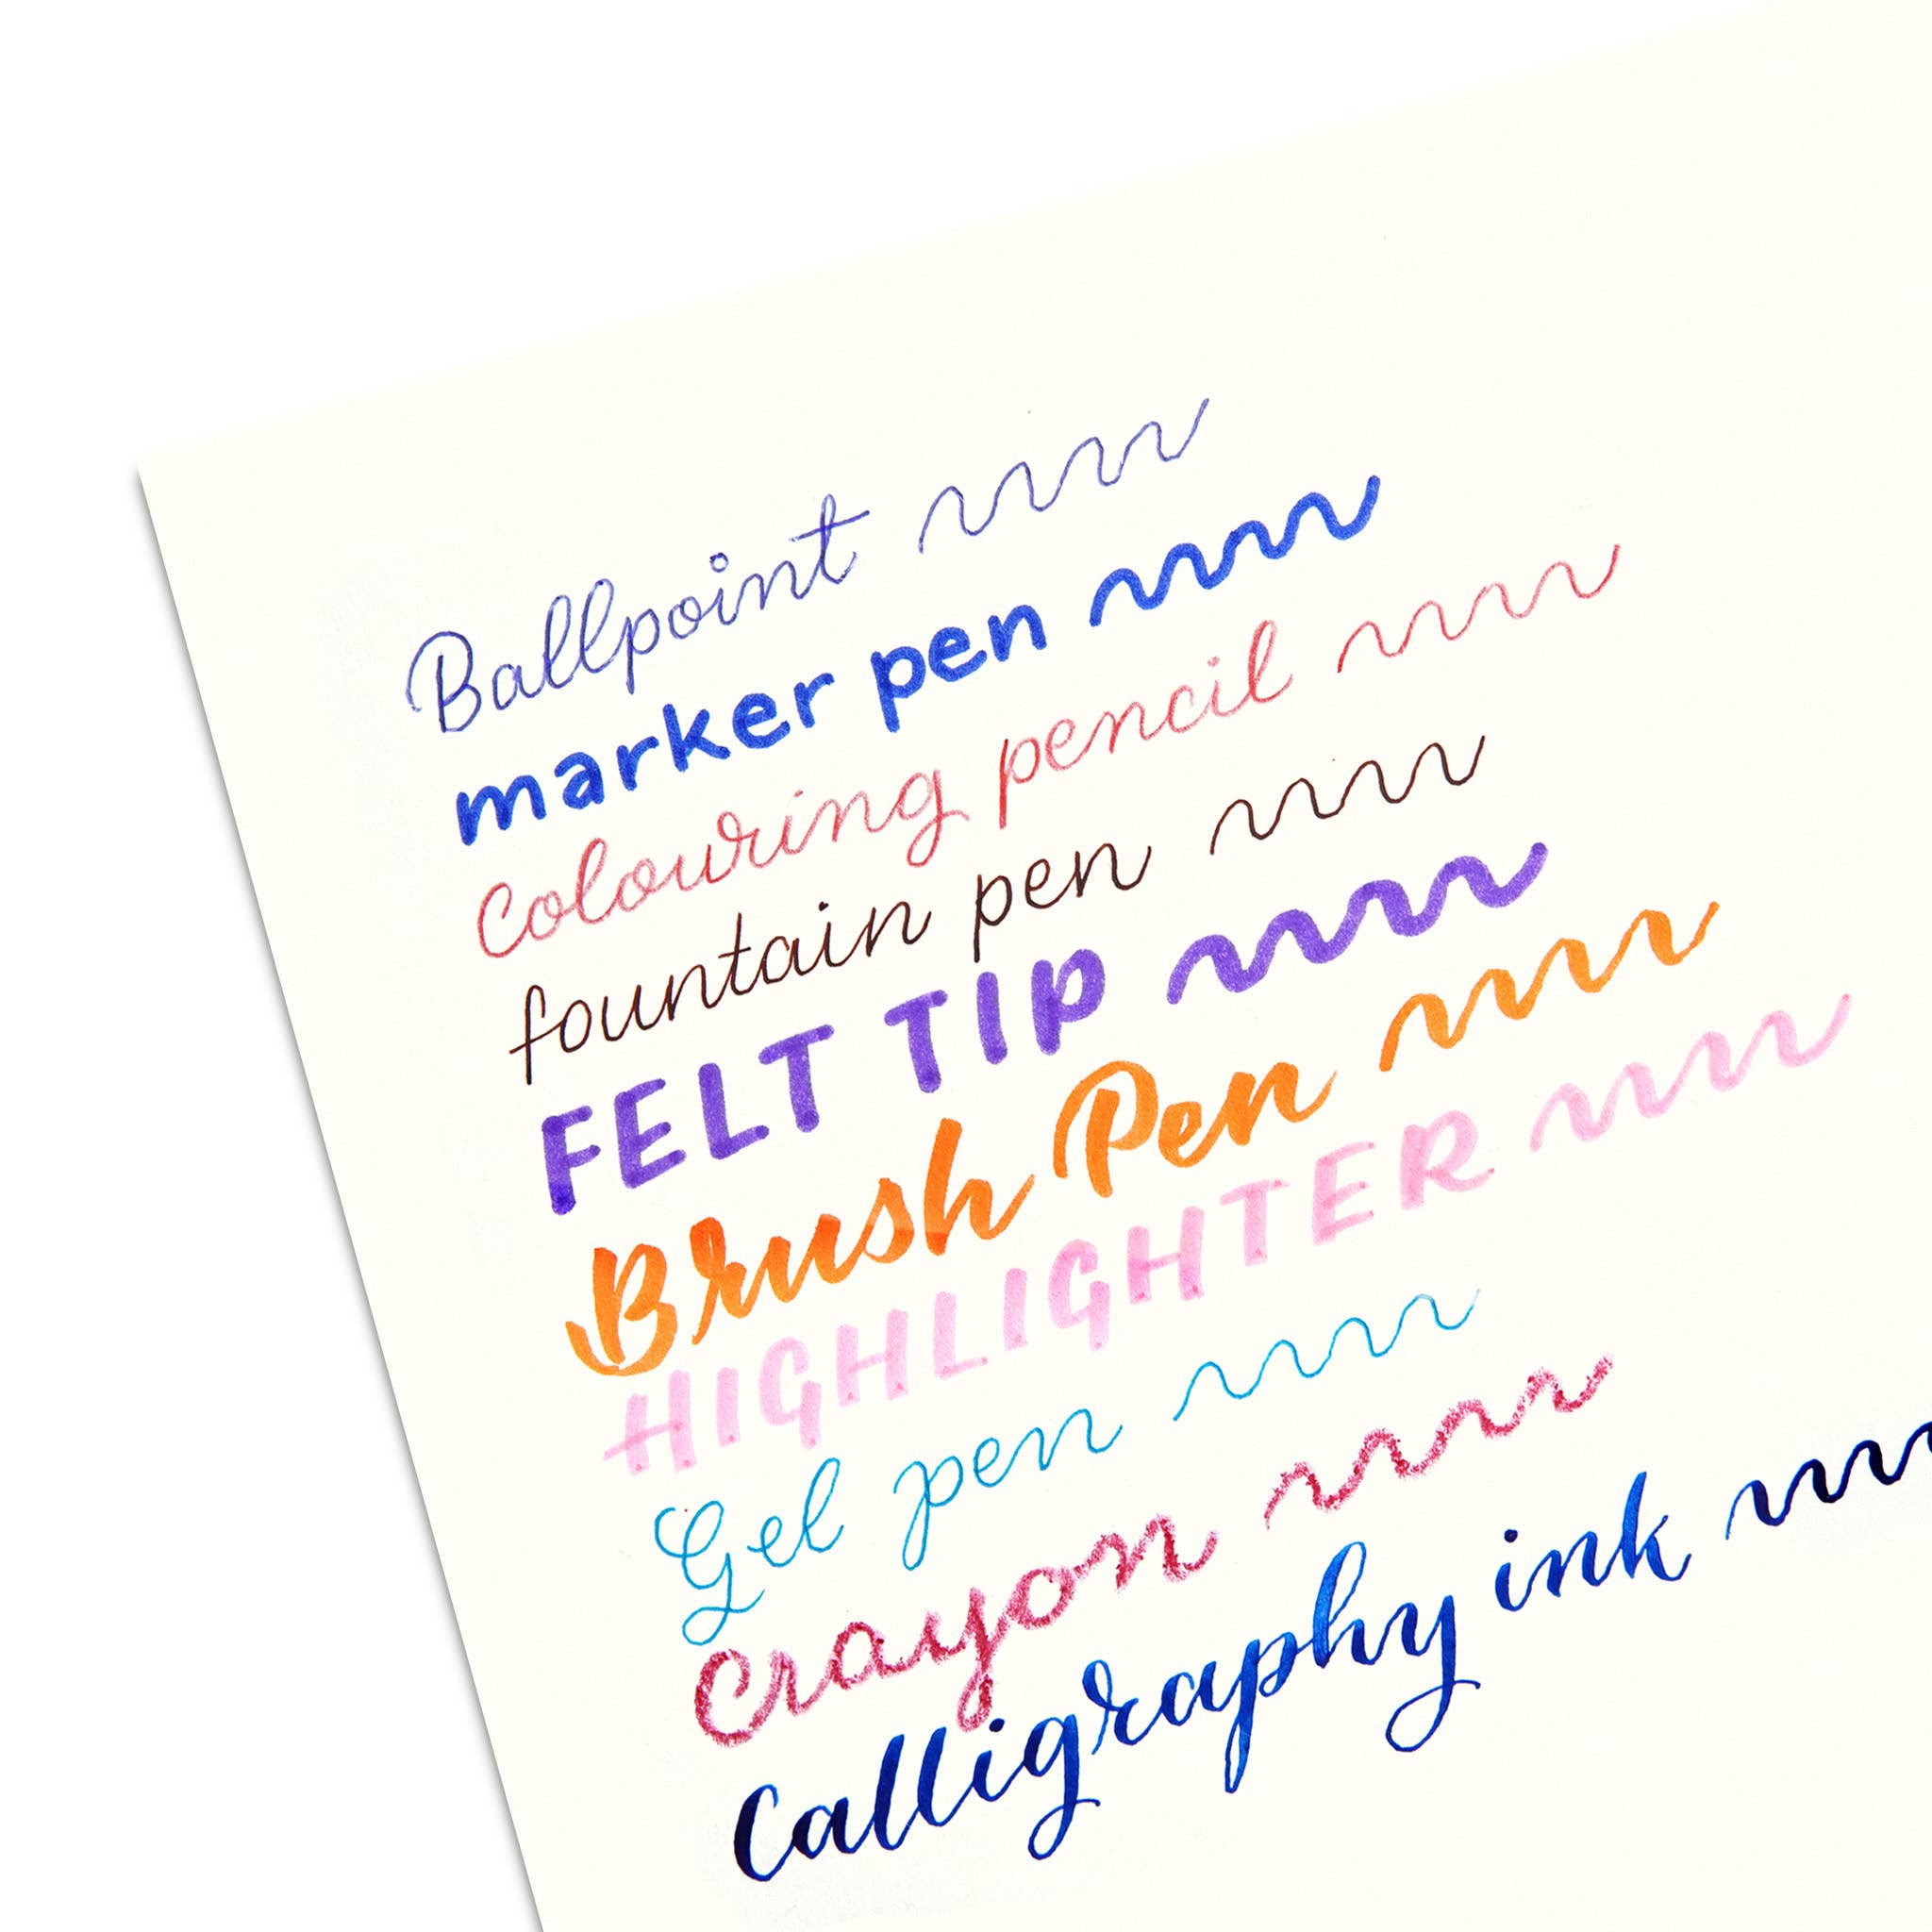 Ballpoint
marker pen
colouring pencil
fountain pen
FELT TIP
Brush Pen
HIGHLIGHTER
Gel pen
Crayon
Calligraphy ink